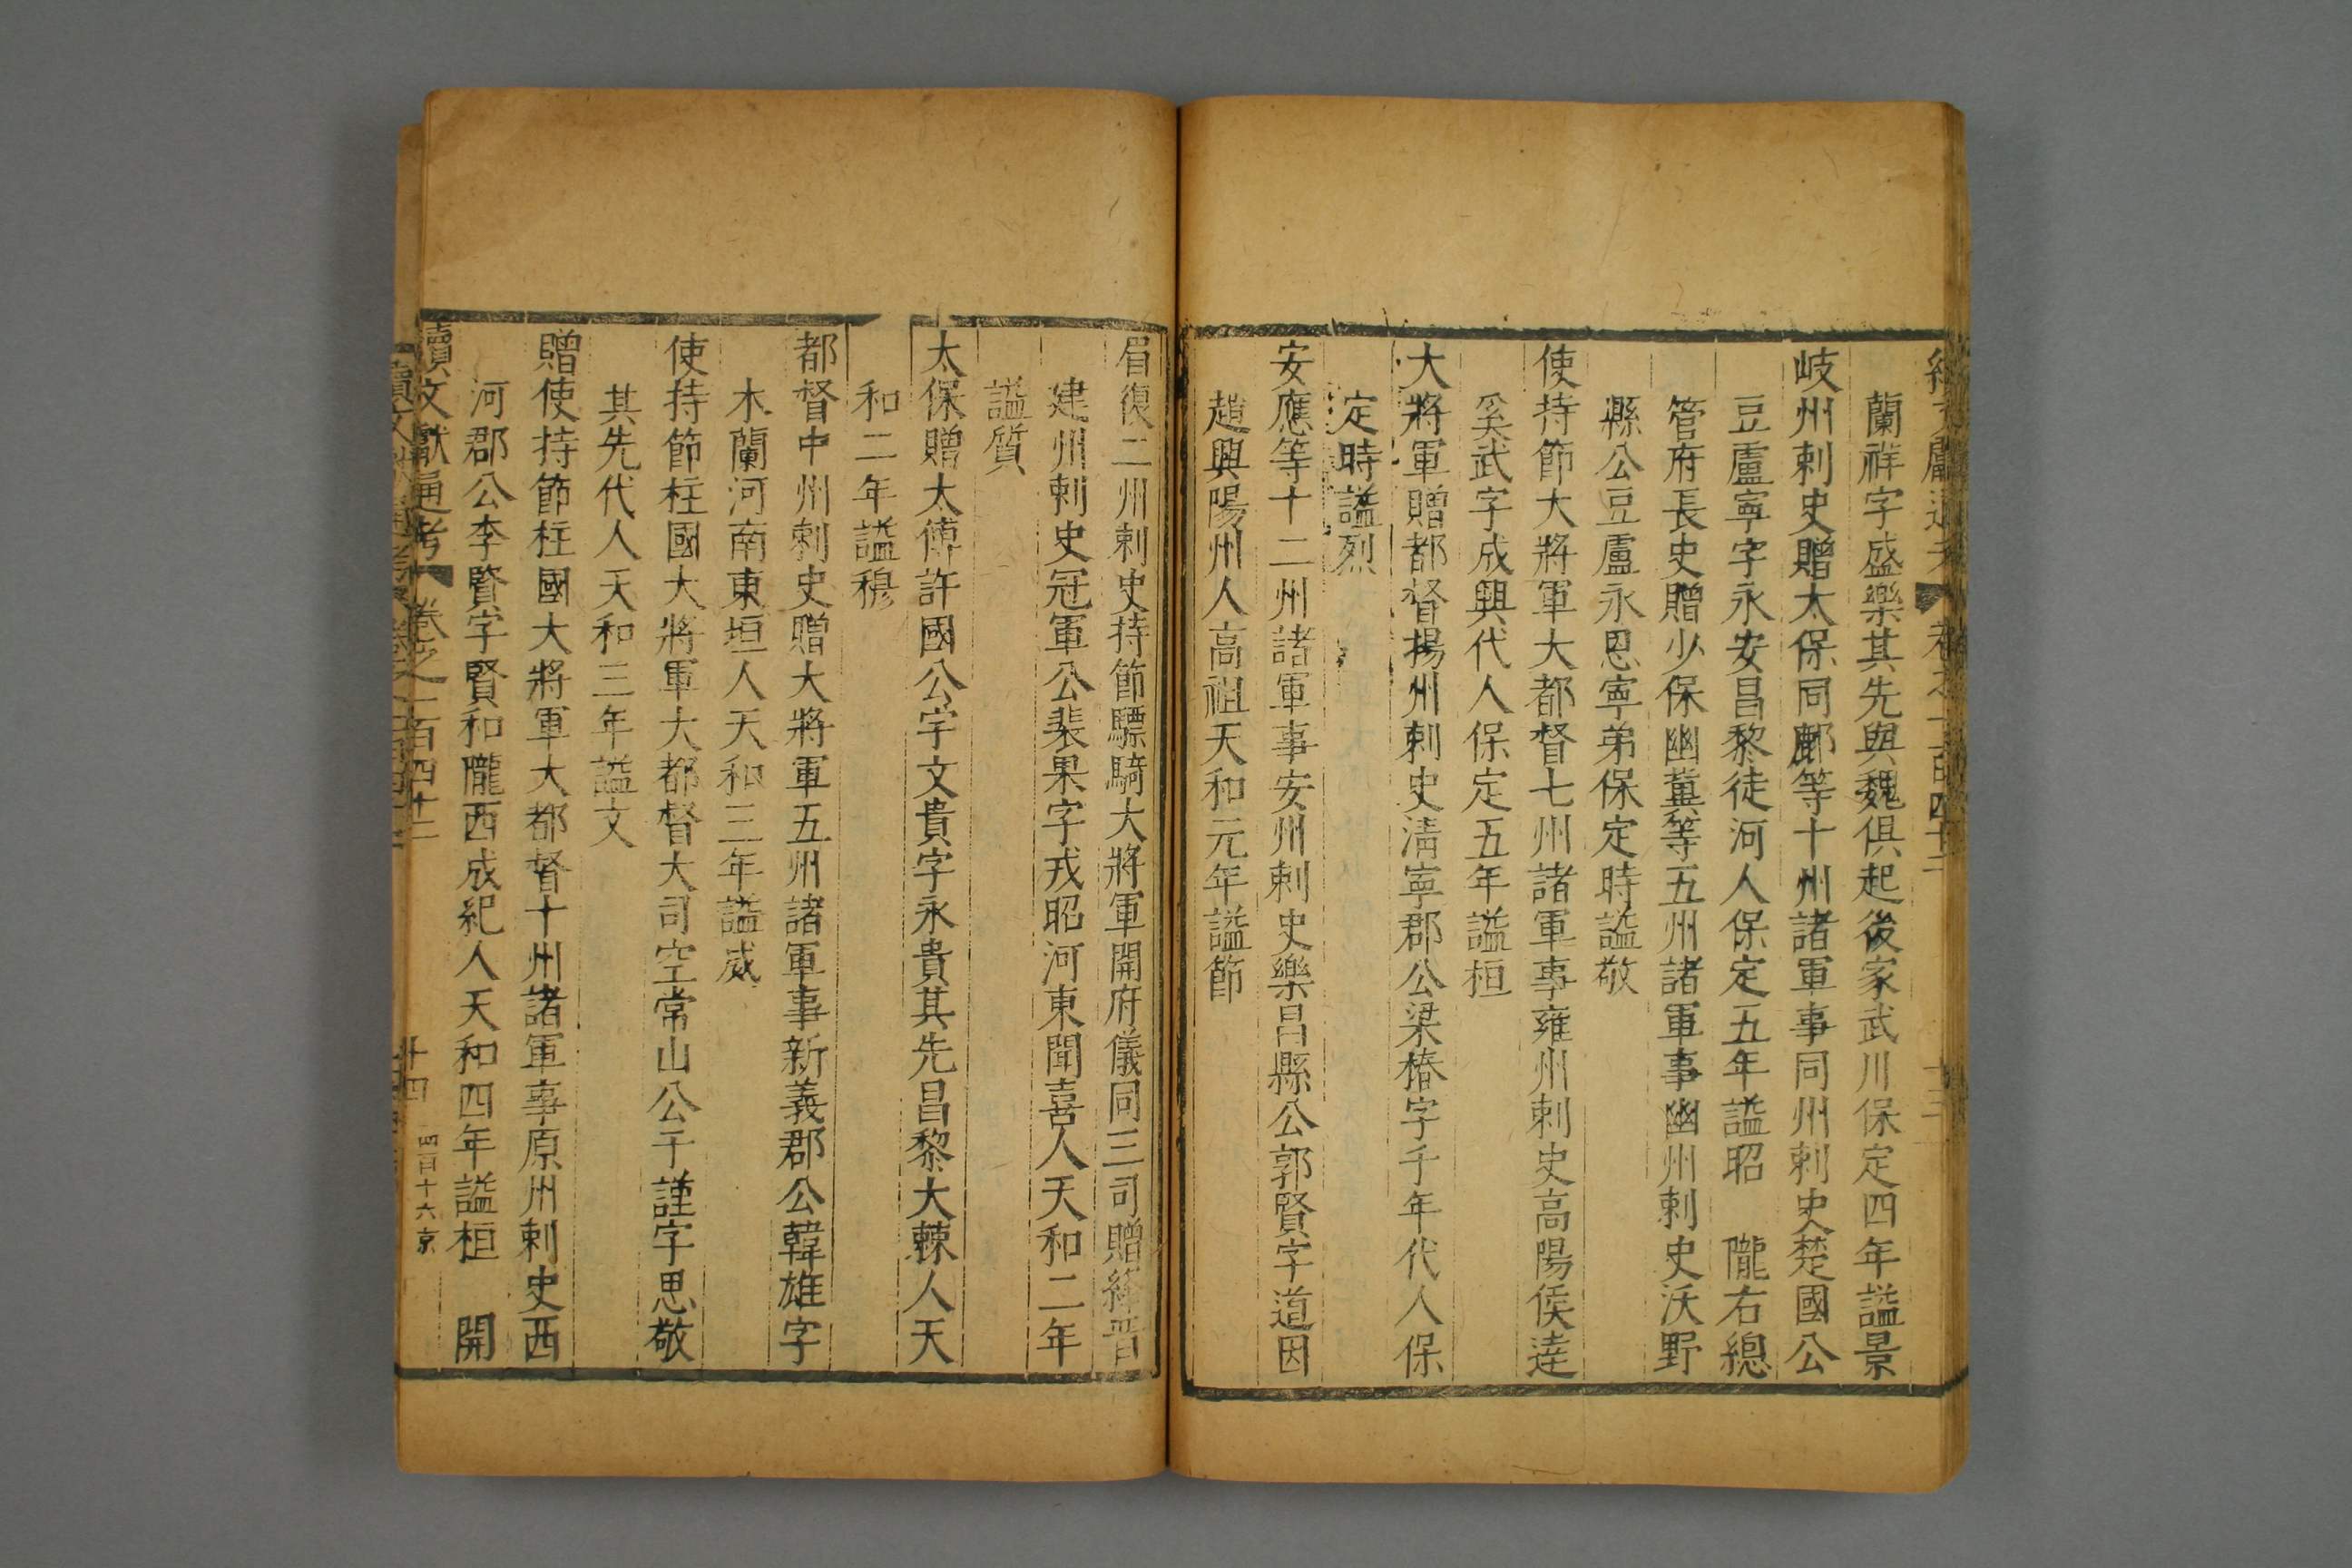 蘭祥字盛樂其先與魏俱起後家武川保定四年謚景
岐州刺史贈太保同鄜等十州諸軍事同州刺史楚國公
豆盧寧字永安昌黎徒河人保定五年謚昭　隴右總
管府長史贈少保幽冀等五州諸軍事幽州刺史沃野
縣公豆盧永恩寧弟保定時謚敬
使持節大將軍大都督七州諸軍事雍州刺史高陽侯達
奚武字成興代人保定五年謚桓
大將軍贈都督揚州刺史清寧郡公梁椿字千年代人保
定時謚烈
安應等十二州諸軍事安州刺史樂昌縣公郭賢字道因
趙興陽州人高祖天和元年謚節
眉復二州刺史持節驃騎大將軍開府儀同三司贈絳晉
建州刺史冠軍公裴果字戎昭河東聞喜人天和二年
謚質
太保贈太傅許國公宇文貴字永貴其先昌黎大棘人天
和二年謚穆
都督中州刺史贈大將軍五州諸軍事新義郡公韓雄字
木蘭河南東垣人天和三年謚威
使持節柱國大將軍大都督大司空常山公于謹字思敬
其先代人天和三年謚文
贈使持節柱國大將軍大都督十州諸軍事原州刺史西
河郡公李賢字賢和隴西成紀人天和四年謚桓　開
續文獻通考　卷之一百四十二　十四　四百十六京